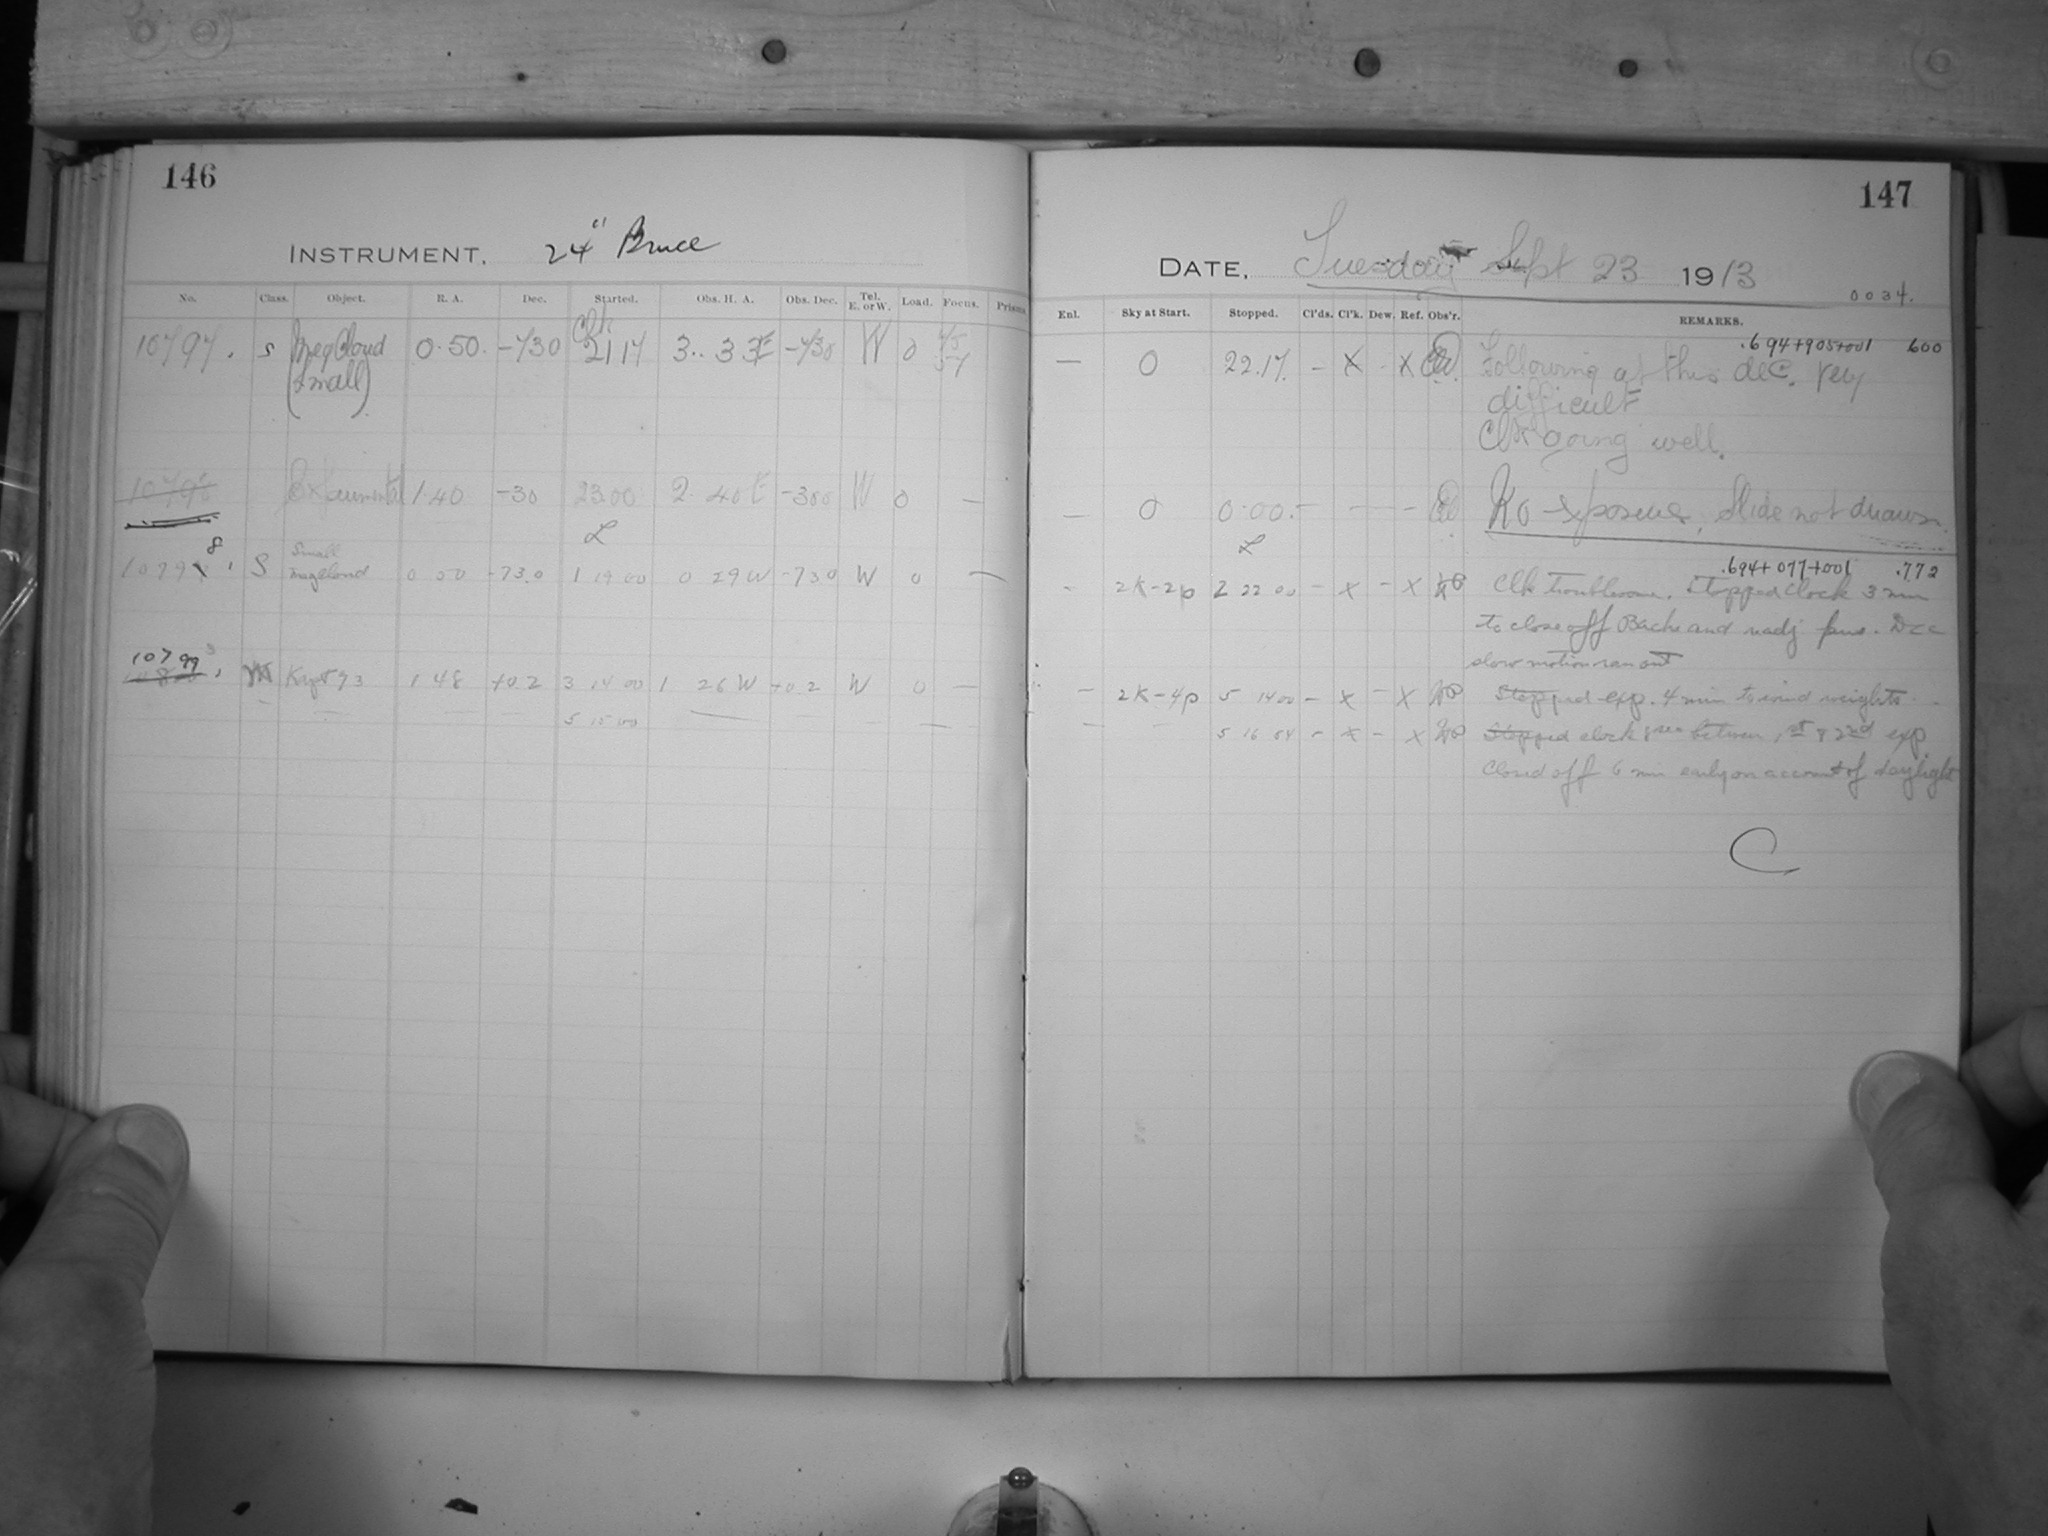 146
INSTRUMENT. 24" Bruce
No. Class. Object. R. A. Dec. Started. Obs. H. A. Obs. Dec. Tel. E. or W. Load. Focus. Prisms
10797. S Mag Cloud 0.50. -730 Clk 21 17 3.. 33 E -730 W 0
(Small)
Experimental 1.40 -30 23.00 2. 40 E -300 W 0 —
L
8
1079 S Small Mag cloud 0 50 -73.0 1 19 00 0 29 W -730 W 0 —
10799 M Kapt 93 1 48 +0.2 3 14 00 1 26 W +0 2 W 0 —
5 15 00
147
DATE, Tuesday Sept 23 1913
0034.
Enl. Sky at Start. Stopped. Cl'ds. Cl'k. Dew. Ref. Obs'r. REMARKS.
.694+905+001 600
— 0 22.17. - X - X Following at this dec. very
difficult
Clk going well.
— 0 0.00. - — - No exposure, Slide not drawn.
L
.694+077+001 .772
- 2K-2p 2 22 00 - X - X Clk troublesome. Stopped Clock 3 min
to close off Bache and readj . Dec
slow motion ran out
- 2K-4p 5 14 00 - X - X Stopped exp. 4 min to wind weights.
5 16 54 - X - X Stopped clock 8 sec between 1st & 2nd exp
Closed off 6 min early on account of daylight
C